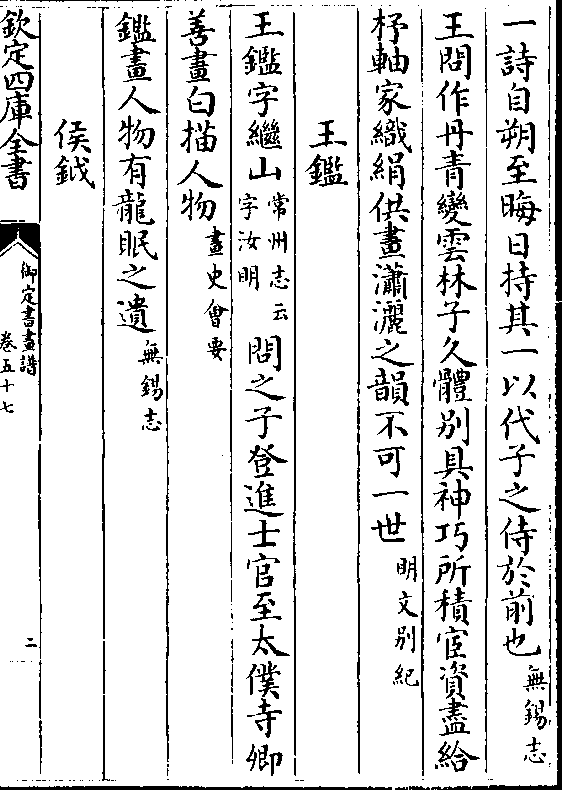 一詩自朔至晦日持其一以代子之侍於前也無錫志
王問作丹青變雲林子久體別具神巧所積宦資盡給
杼軸家織絹供畫瀟灑之韻不可一世明文別紀
王鑑
王鑑字繼山常州志云字汝明問之子登進士官至太僕寺卿
善畫白描人物畫史會要
鑑畫人物有龍眠之遺無錫志
侯鉞
欽定四庫全書
御定書畫譜
卷五十七
二